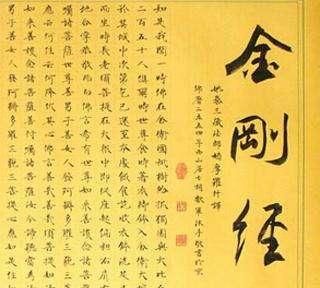 金剛經
姚秦三藏法師鳩摩羅什譯
佛曆二五五四年西山居士胡
如是我聞一時佛在舍衛國祇樹給孤獨園與大比
二百五十人俱爾時世尊食時著衣持鉢入舍衛大
於其城中次第乞已還至本處飯食訖收衣鉢洗足
而坐時長老須菩提在大眾中即從座起偏袒右肩
地合掌恭敬而白佛言希有世尊如來善護念諸菩薩
囑諸菩薩世尊善男子善女人發阿耨多羅三藐三菩
應云何住云何降伏其心佛言善哉善哉須菩提
如來善護念諸菩薩善付囑諸菩薩汝今諦聽當為
男子善女人發阿耨多羅三藐三菩提心應如是住如